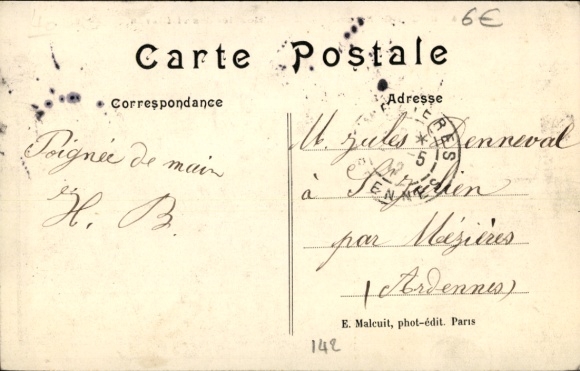 6€
Carte Postale
Correspondance
Adresse
M. Jules Denneval
à St Julien
par Mézières
(Ardennes)
Poignée de main
H. B.
E. Malcuit, phot-édit. Paris
142